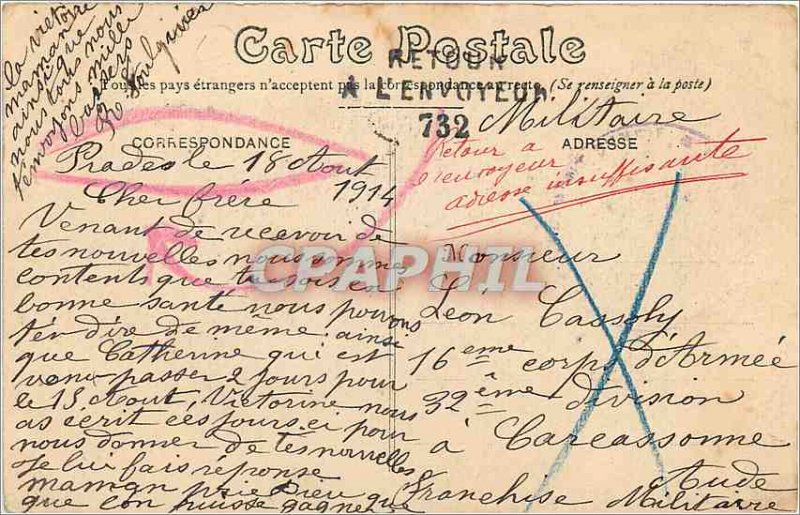 Carte Postale
RETOUR
A L'ENVOYEUR
732
Tous les pays étrangers n'acceptent pas la correspondance au recto. (Se renseigner à la poste)
CORRESPONDANCE
Prades le 18 Aout
1914
Cher frére
Venant de recevoir de
tes nouvelles nous sommes
contents que tu sois en
bonne santé nous pouvons
t'en dire de même ainsi
que Catherine qui est
venu passer 2 jours pour
le 15 Aout, Victorine nous
as écrit ces jours ci pour
nous donner de tes nouvelles
Je lui fais réponse
maman prie Dieu que
que l'on puisse gagner
la victoire
maman
ainsi que
nous tous nous
t'envoyons mille
baisers
Militaire
ADRESSE
Retour a
l'envoyeur
adresse insuffisante
Monsieur
Léon Cassoly
16eme corps d'Armée
32ème division
à Carcassonne
Aude
Franchise Militaire
CPAPHIL